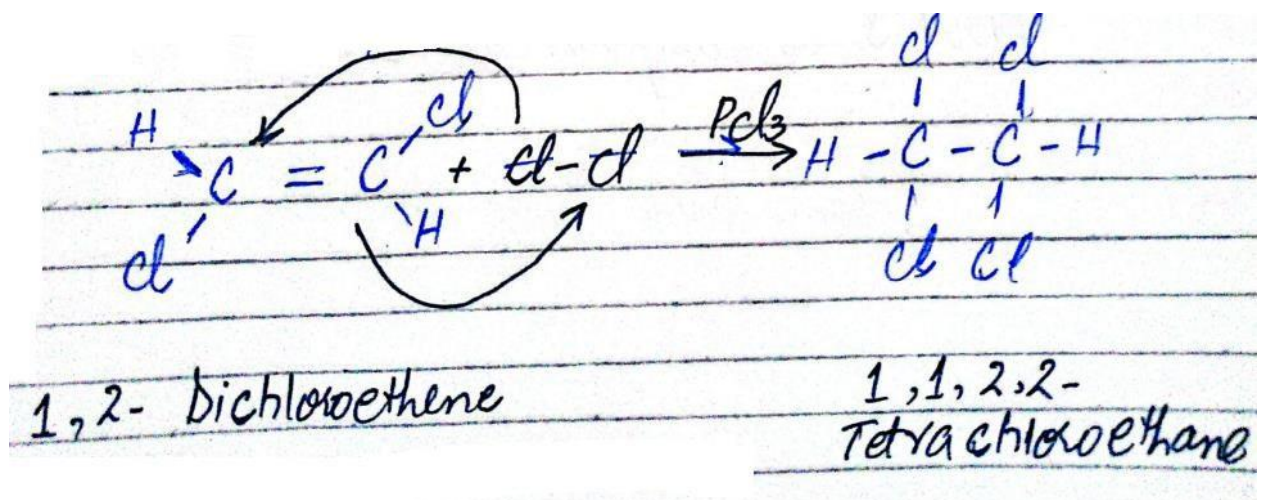 Cl Cl
H Cl PCl3
C = C + Cl-Cl → H - C - C - H
Cl H
Cl Cl
1, 2- Dichloroethene
1, 1, 2, 2-
Tetrachloroethane